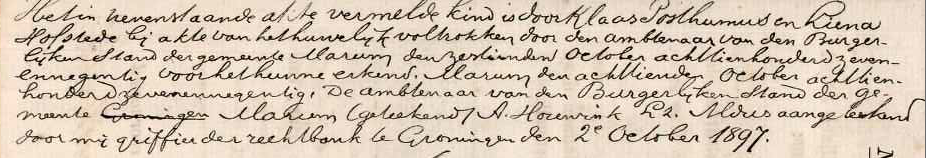 Het in nevenstaande akte vermelde kind is door Klaas Posthumus en Liena
Hofstede bij akte van het huwelijk voltrokken door den ambtenaar van den Burger-
lijken Stand der gemeente Marum den zestienden October achttienhonderd zeven-
ennegentig voor het hunne erkend. Marum den achttienden October achttien-
honderd zevenennegentig. De ambtenaar van den Burgerlijken Stand der ge-
meente Groningen Marum (geteekend) A. Houwink Lz. Aldus aangeteekend
door mij griffier der rechtbank te Groningen den 2e October 1897.